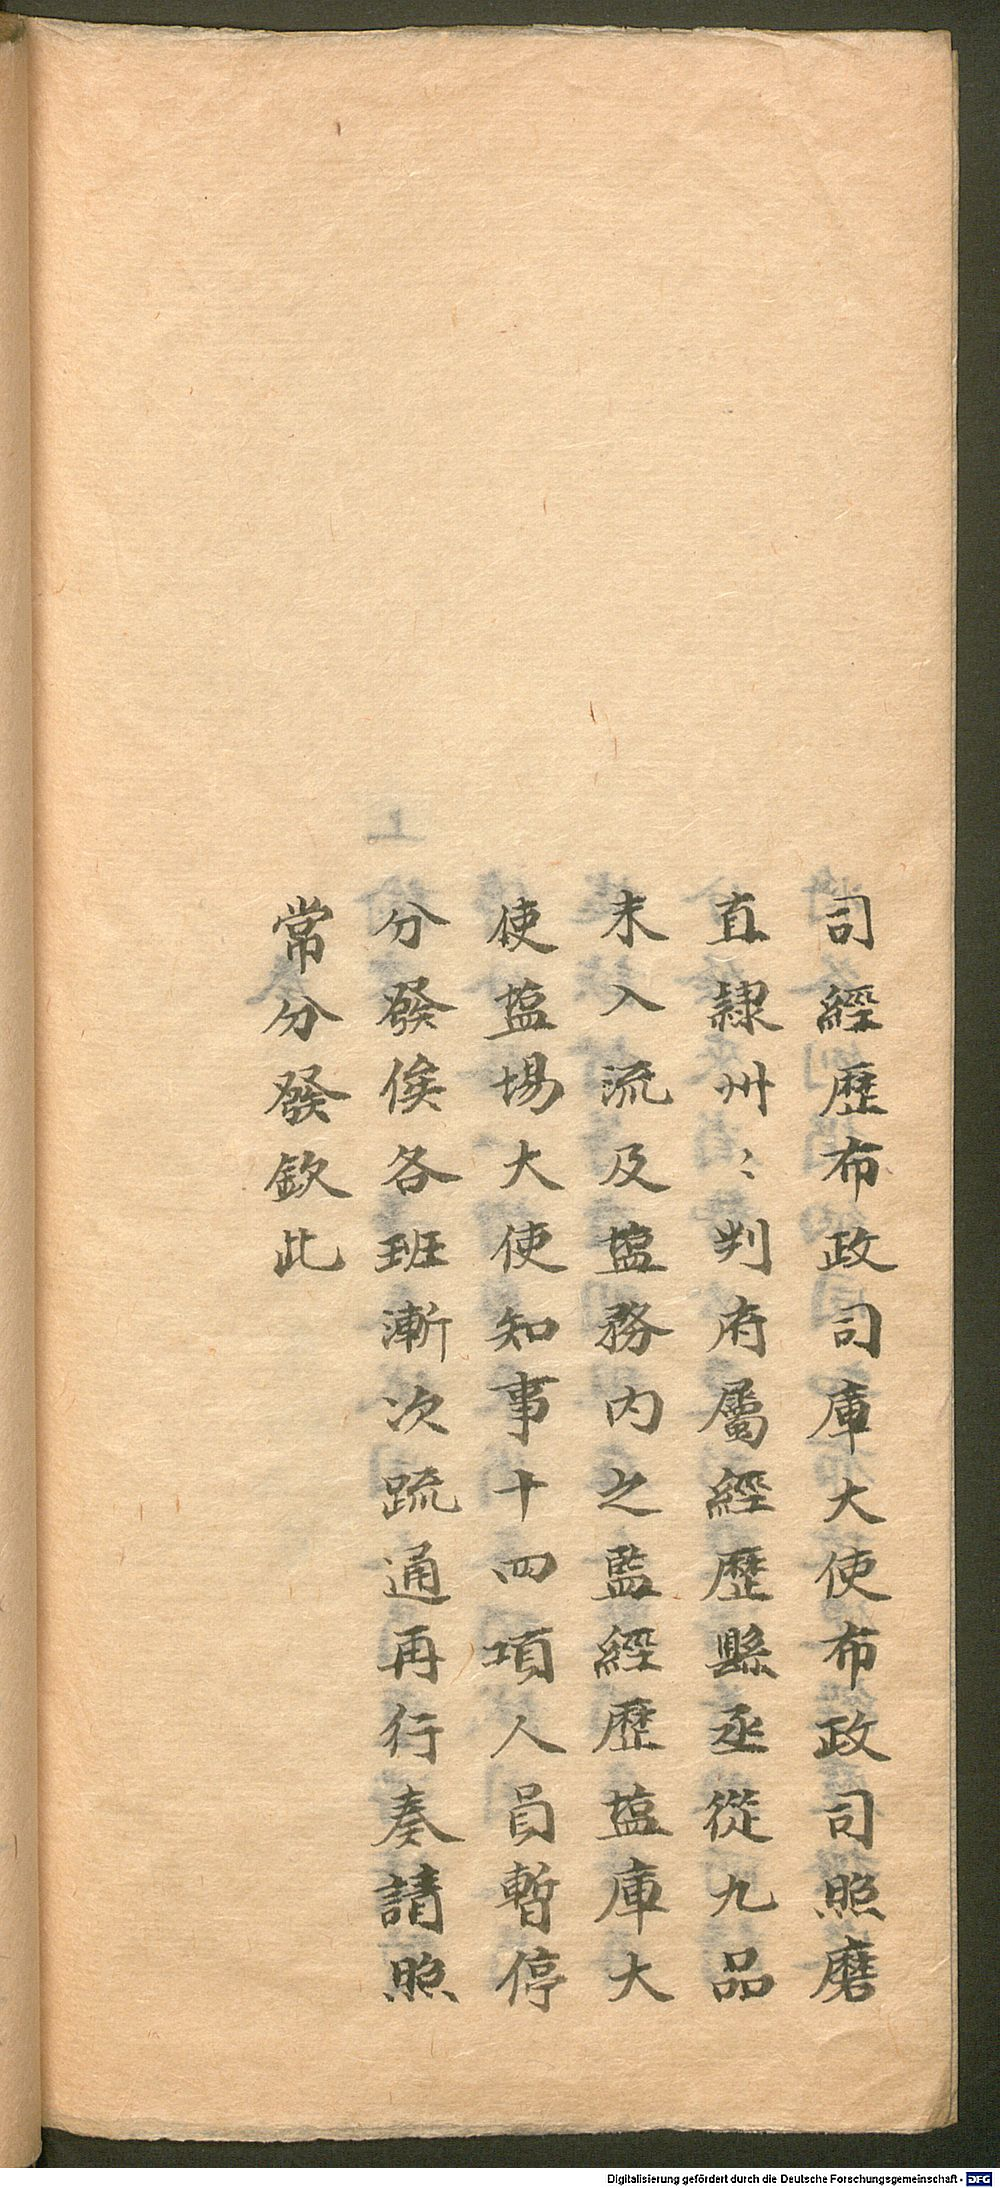 司經歷布政司庫大使布政司照磨
直隷州〻判府屬經歷縣丞從九品
未入流及塩務内之監經歷塩庫大
使塩場大使知事十四項人員暫停
分發俟各班漸次疏通再行奏請照
常分發欽此
Digitalisierung gefördert durch die Deutsche Forschungsgemeinschaft - DFG